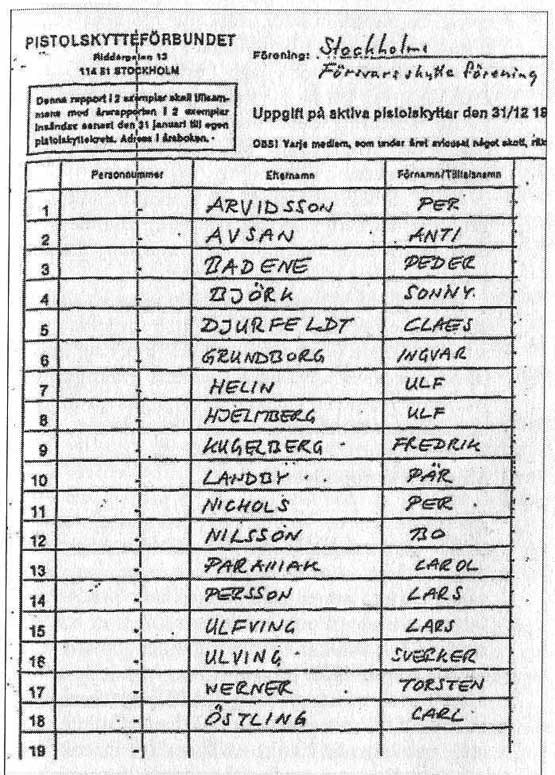 PISTOLSKYTTEFÖRBUNDET
Riddargatan 13
114 51 STOCKHOLM
Denna rapport i 2 exemplar skall tillsam-
mans med årsrapporten i 2 exemplar
insändas senast den 31 januari till egen
pistolskyttekrets. Adress i årsboken.
Förening: Stockholms
Försvarsskytte förening
Uppgift på aktiva pistolskyttar den 31/12 19
OBS! Varje medlem, som under året avlossat något skott,
Personnummer Efternamn Förnamn/Tilltalsnamn
1 ARVIDSSON PER
2 AVSAN ANTI
3 BADENE PEDER
4 BJÖRK SONNY
5 DJURFELDT CLAES
6 GRUNDBORG INGVAR
7 HELIN ULF
8 HJELMBERG ULF
9 KUGELBERG FREDRIK
10 LANDBY PÄR
11 NICHOLS PER
12 NILSSON BO
13 PARANIAK CAROL
14 PERSSON LARS
15 ULFVING LARS
16 ULVING SVERKER
17 WERNER TORSTEN
18 ÖSTLING CARL
19